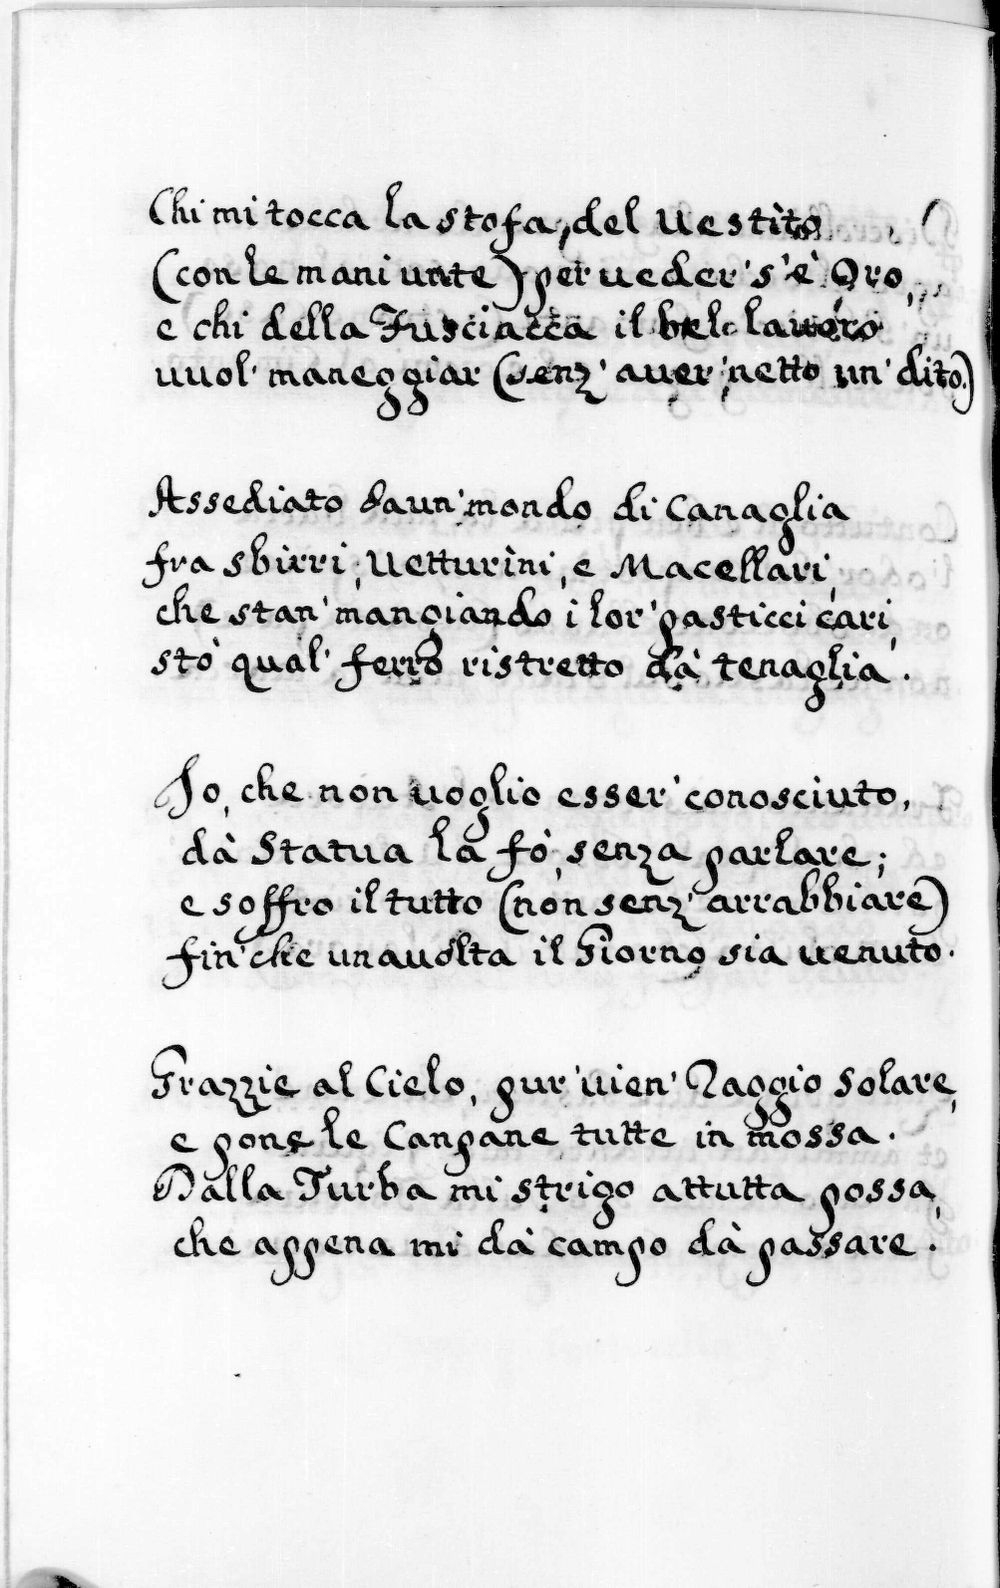 Chi mi tocca la stofa, del Uestito
(con le mani unte) per ueder' s'è Oro,
e chi della Fusciacca il bel lauoro
uuol' maneggiar (senz' auer' netto un' dito.)
Assediato da un' mondo di Canaglia
fra sbirri, Uetturini, e Macellari,
che stan' mangiando i lor' pasticci cari,
stò qual' ferro ristretto dà tenaglia.
Io, che non uoglio esser' conosciuto,
dà Statua la fò, senza parlare;
e soffro il tutto (non senz' arrabbiare)
fin' che una uolta il Giorno sia uenuto.
Grazzie al Cielo, pur' uien' Raggio Solare,
e pone le Canpane tutte in mossa.
Dalla Turba mi strigo attutta possa,
che appena mi dà campo dà passare.